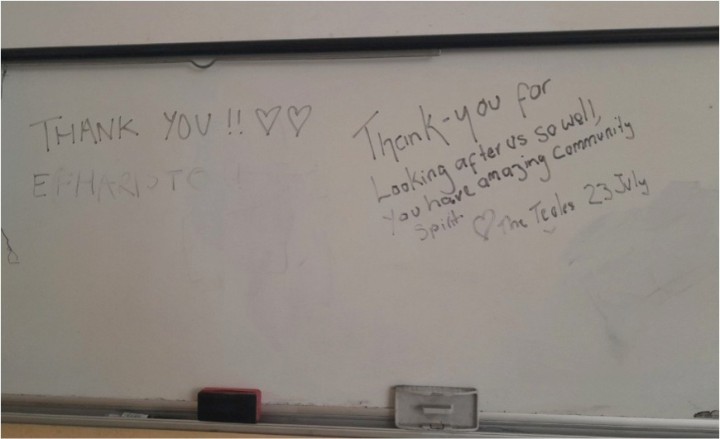 THANK YOU !! ♡♡
EFHARISTO
Thank-you for
Looking after us so well,
You have amazing Community
Spirit ♡ The Teales 23 July